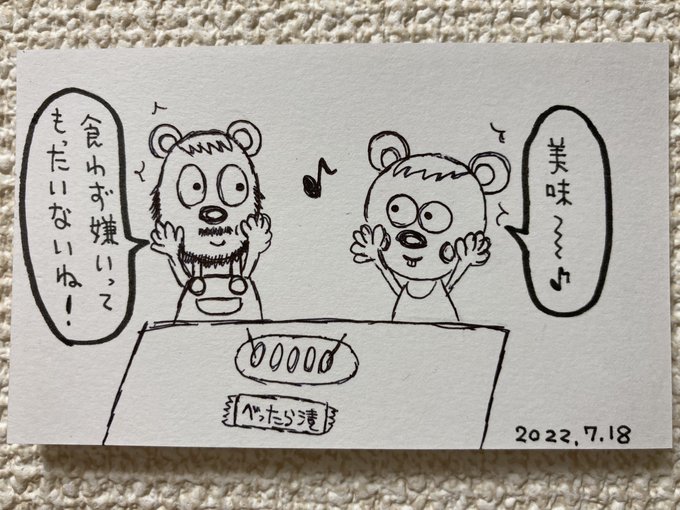 美味～～♪
食わず嫌いって
もったいないね！
べったら漬
2022.7.18